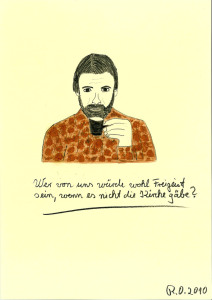 Wer von uns würde wohl Freigeist
sein, wenn es nicht die Kirche gäbe?
R.O. 2010